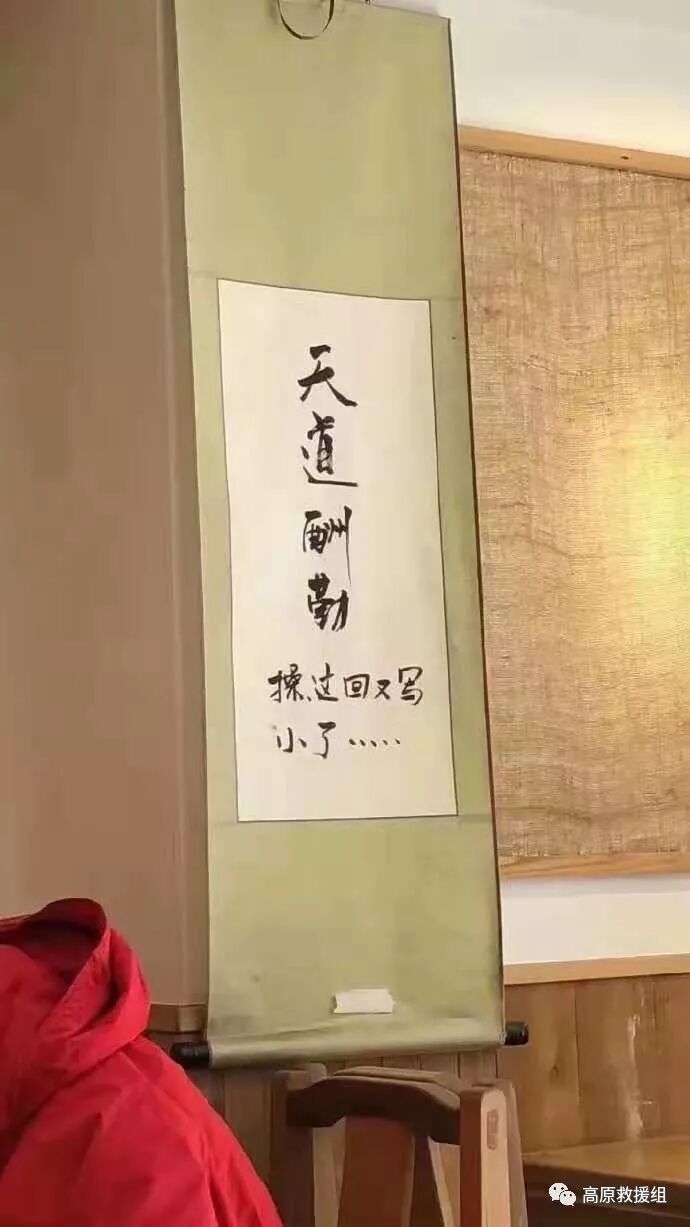 天道酬勤
操,这回又写
小了……
高原救援组